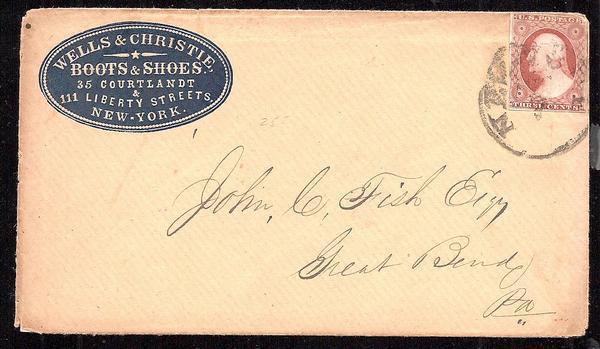 WELLS & CHRISTIE,
BOOTS & SHOES.
35 COURTLANDT
&
111 LIBERTY STREETS,
NEW-YORK.
U.S. POSTAGE
THREE CENTS
25
John, C, Fish Esqr
Great Bend
Pa